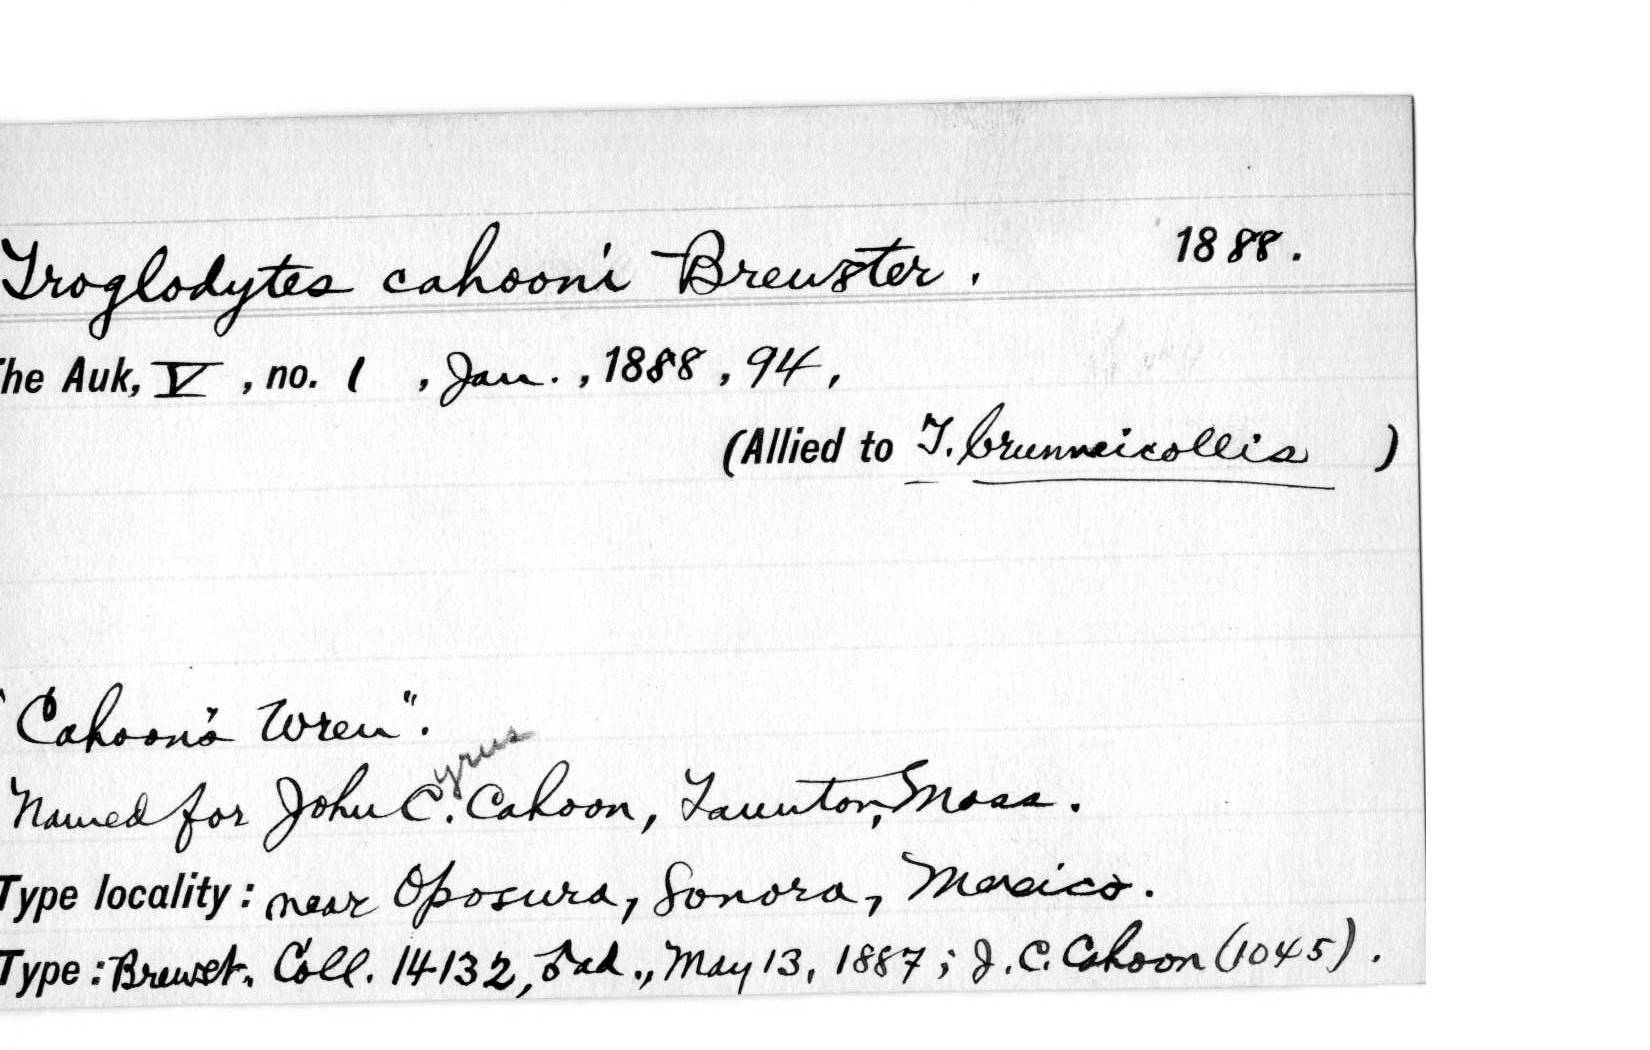 Troglodytes cahooni Brewster. 1888.
The Auk, V, no. 1, Jan., 1888, 94,
(Allied to T. brunneicollis)
"Cahoon's Wren".
yrus
Named for John C. Cahoon, Taunton, Mass.
Type locality: near Oposura, Sonora, Mexico.
Type: Brewst. Coll. 14132, ♂ ad., May 13, 1887; J. C. Cahoon (1045).